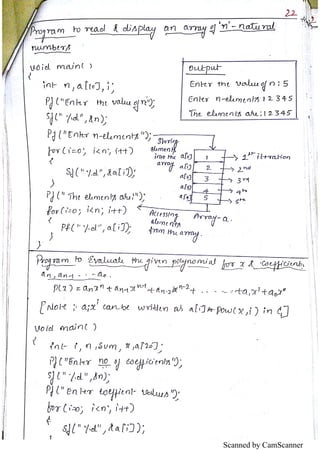 22
Program to read & display an array of 'n'-natural
numbers
void main()
{
int n, a[10], i;
Pf("Enter the value of n");
Sf("%d", &n);
Pf("Enter n-elements");
for(i=0; i<n; i++)
{
Sf("%d", &a[i]);
}
Pf("The elements are:");
for(i=0; i<n; i++)
{
Pf("%d", a[i]);
}
}
Output
Enter the value of n: 5
Enter n-elements: 1 2 3 4 5
The elements are: 1 2 3 4 5
Storing
elements
into the
array
a[0] 1 → 1st itrration
a[1] 2 → 2nd
a[2] 3 → 3rd
a[3] 4 → 4th
a[4] 5 → 5th
Array-a.
Accessing
Elements
from the array.
Program to Evaluate the given polynomial for x & Coefficients
an, an-1 - - - a0.
P(x) = anx^n + an-1x^n-1 + an-2x^n-2 + . . . . . + a1x^1 + a0x^0
[Note :- aix^i can be written as a[i] * pow(x,i) in C]
void main()
{
int i, n, sum, x, a[20];
Pf("Enter no of coefficients");
Sf("%d", &n);
Pf("Enter coefficient values");
for(i=0; i<n; i++)
{
Sf("%d", &a[i]);
Scanned by CamScanner